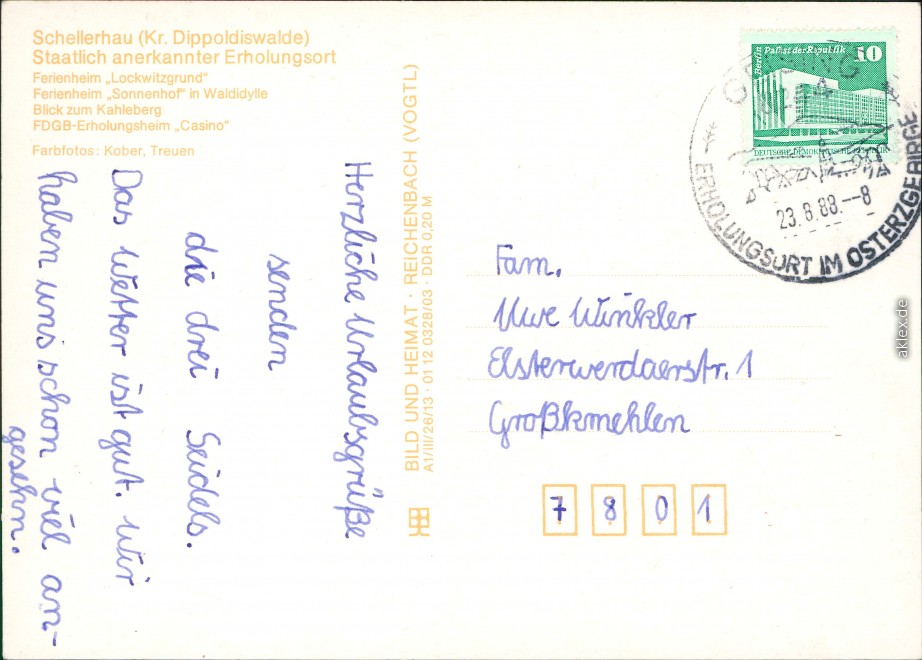 Schellerhau (Kr. Dippoldiswalde)
Staatlich anerkannter Erholungsort
Ferienheim „Lockwitzgrund"
Ferienheim „Sonnenhof" in Waldidylle
Blick zum Kahleberg
FDGB-Erholungsheim „Casino"
Farbfotos: Kober, Treuen
Herzliche Urlaubsgrüße
senden
die drei Seidels.
Das Wetter ist gut. Wir
haben uns schon viel an-
gesehn.
BILD UND HEIMAT · REICHENBACH (VOGTL)
A1/III/26/13 · 01 12 0328/03 · DDR 0,20 M
Berlin Palast der Republik 10
DEUTSCHE DEMOKRATISCHE REPUBLIK
GEISING
23.8.88.--8
ERHOLUNGSORT IM OSTERZGEBIRGE
Fam.
Uwe Winkler
Elsterwerdaerstr. 1
Großkmehlen
7801
aklex.de